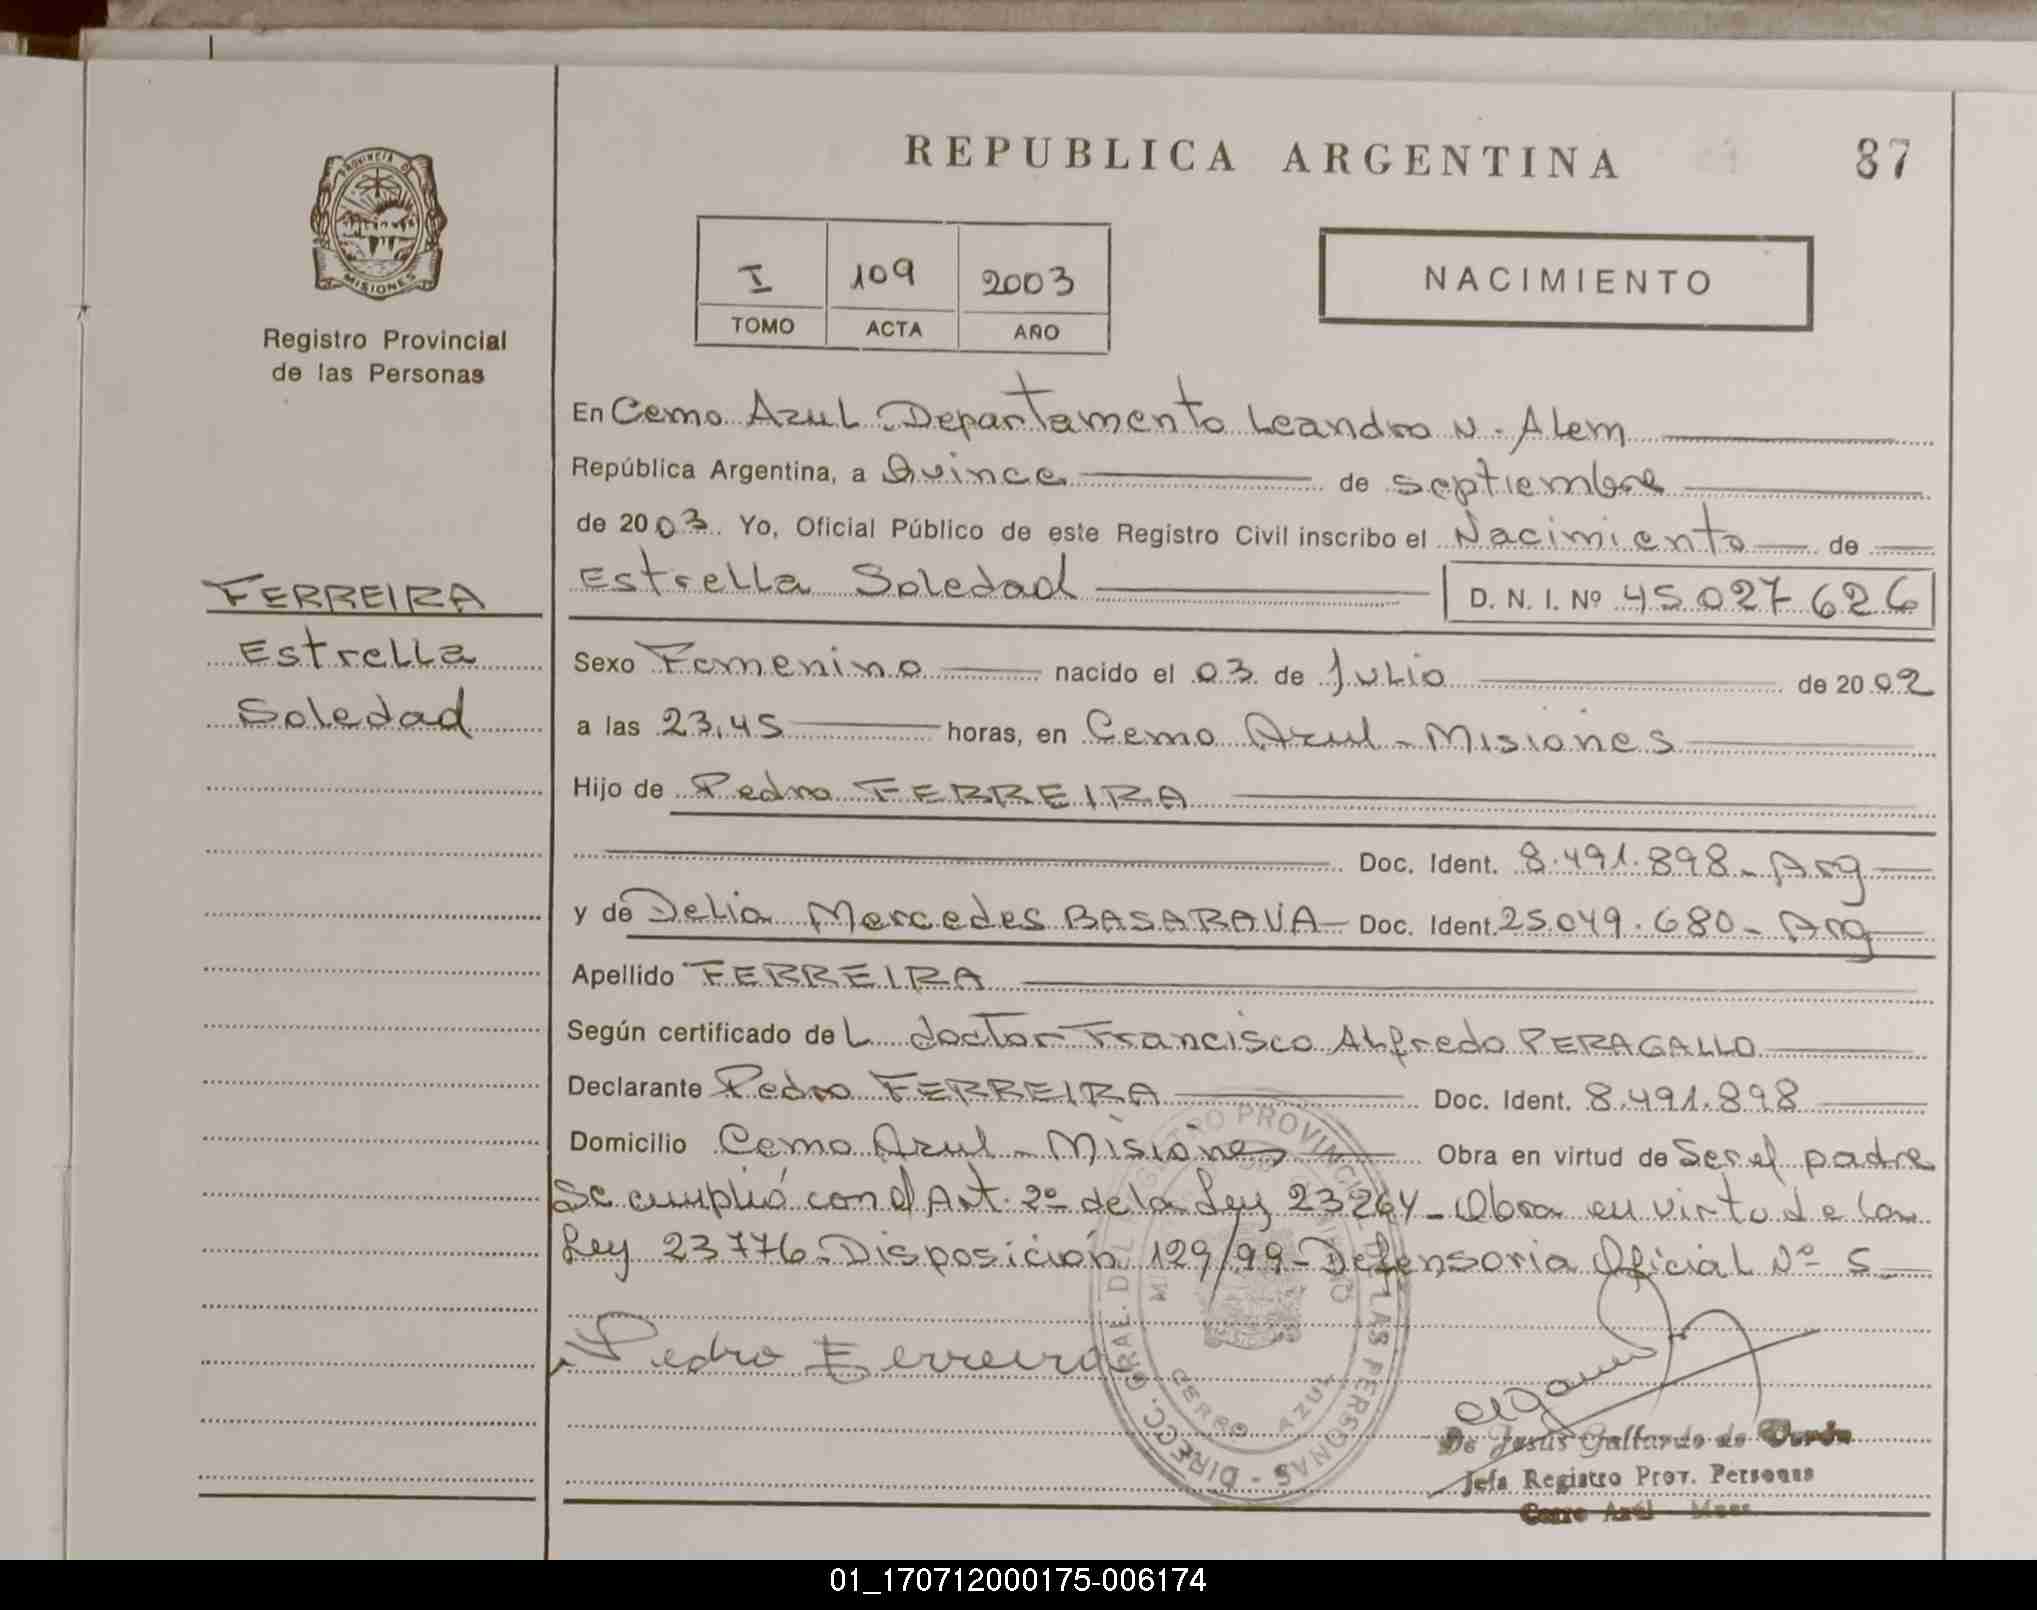 REPUBLICA ARGENTINA
87
PROVINCIA DE
MISIONES
Registro Provincial
de las Personas
I 109 2003
TOMO ACTA AÑO
NACIMIENTO
En Cerro Azul Departamento Leandro N. Alem
República Argentina, a Quince de septiembre
de 2003. Yo, Oficial Público de este Registro Civil inscribo el Nacimiento de
Estrella Soledad D. N. I. Nº 45.027.626
FERREIRA
Estrella
Soledad
Sexo Femenino nacido el 03 de Julio de 2002
a las 23.45 horas, en Cerro Azul - Misiones
Hijo de Pedro FERREIRA
Doc. Ident. 8.491.898 - Arg
y de Delia Mercedes BASARAVA Doc. Ident. 25.049.680 - Arg
Apellido FERREIRA
Según certificado del doctor Francisco Alfredo PERAGALLO
Declarante Pedro FERREIRA Doc. Ident. 8.491.898
Domicilio Cerro Azul - Misiones Obra en virtud de Ser el padre
Se cumplió con el Art. 2º de la Ley 23264 - Obra en virtu de la
Ley 23776 - Disposición 129/99 - Defensoria Oficial Nº 5
Pedro Ferreira
DIRECC. GRAL. DEL REGISTRO PROVINCIAL DE LAS PERSONAS -
CERRO AZUL
De Jesús Gallardo de
Jefa Registro Prov. Personas
Cerro Azúl
01_170712000175-006174